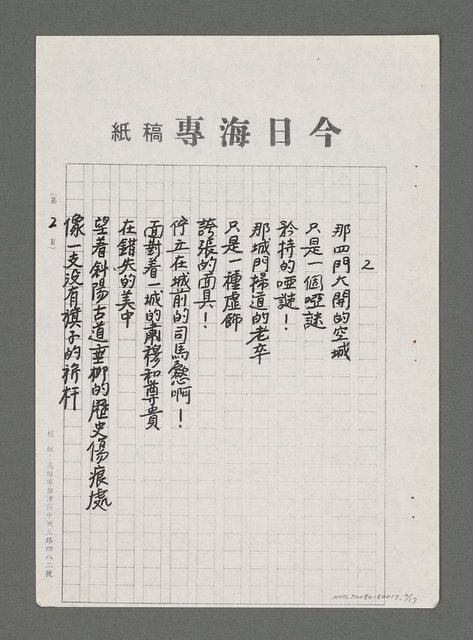 今日海專稿紙
2
那四門大開的空城
只是一個啞謎
矜持的啞謎！
那城門掃道的老卒
只是一種虛飾
誇張的面具！
佇立在城前的司馬懿啊！
面對着一城的肅穆和尊貴
在錯失的美中
望着斜陽古道垂柳的歷史傷痕處
像一支没有旗子的旂杆
（第2頁）
校 址：高雄市旗津區中洲三路四八二號
NMTL20080180017, 2/17